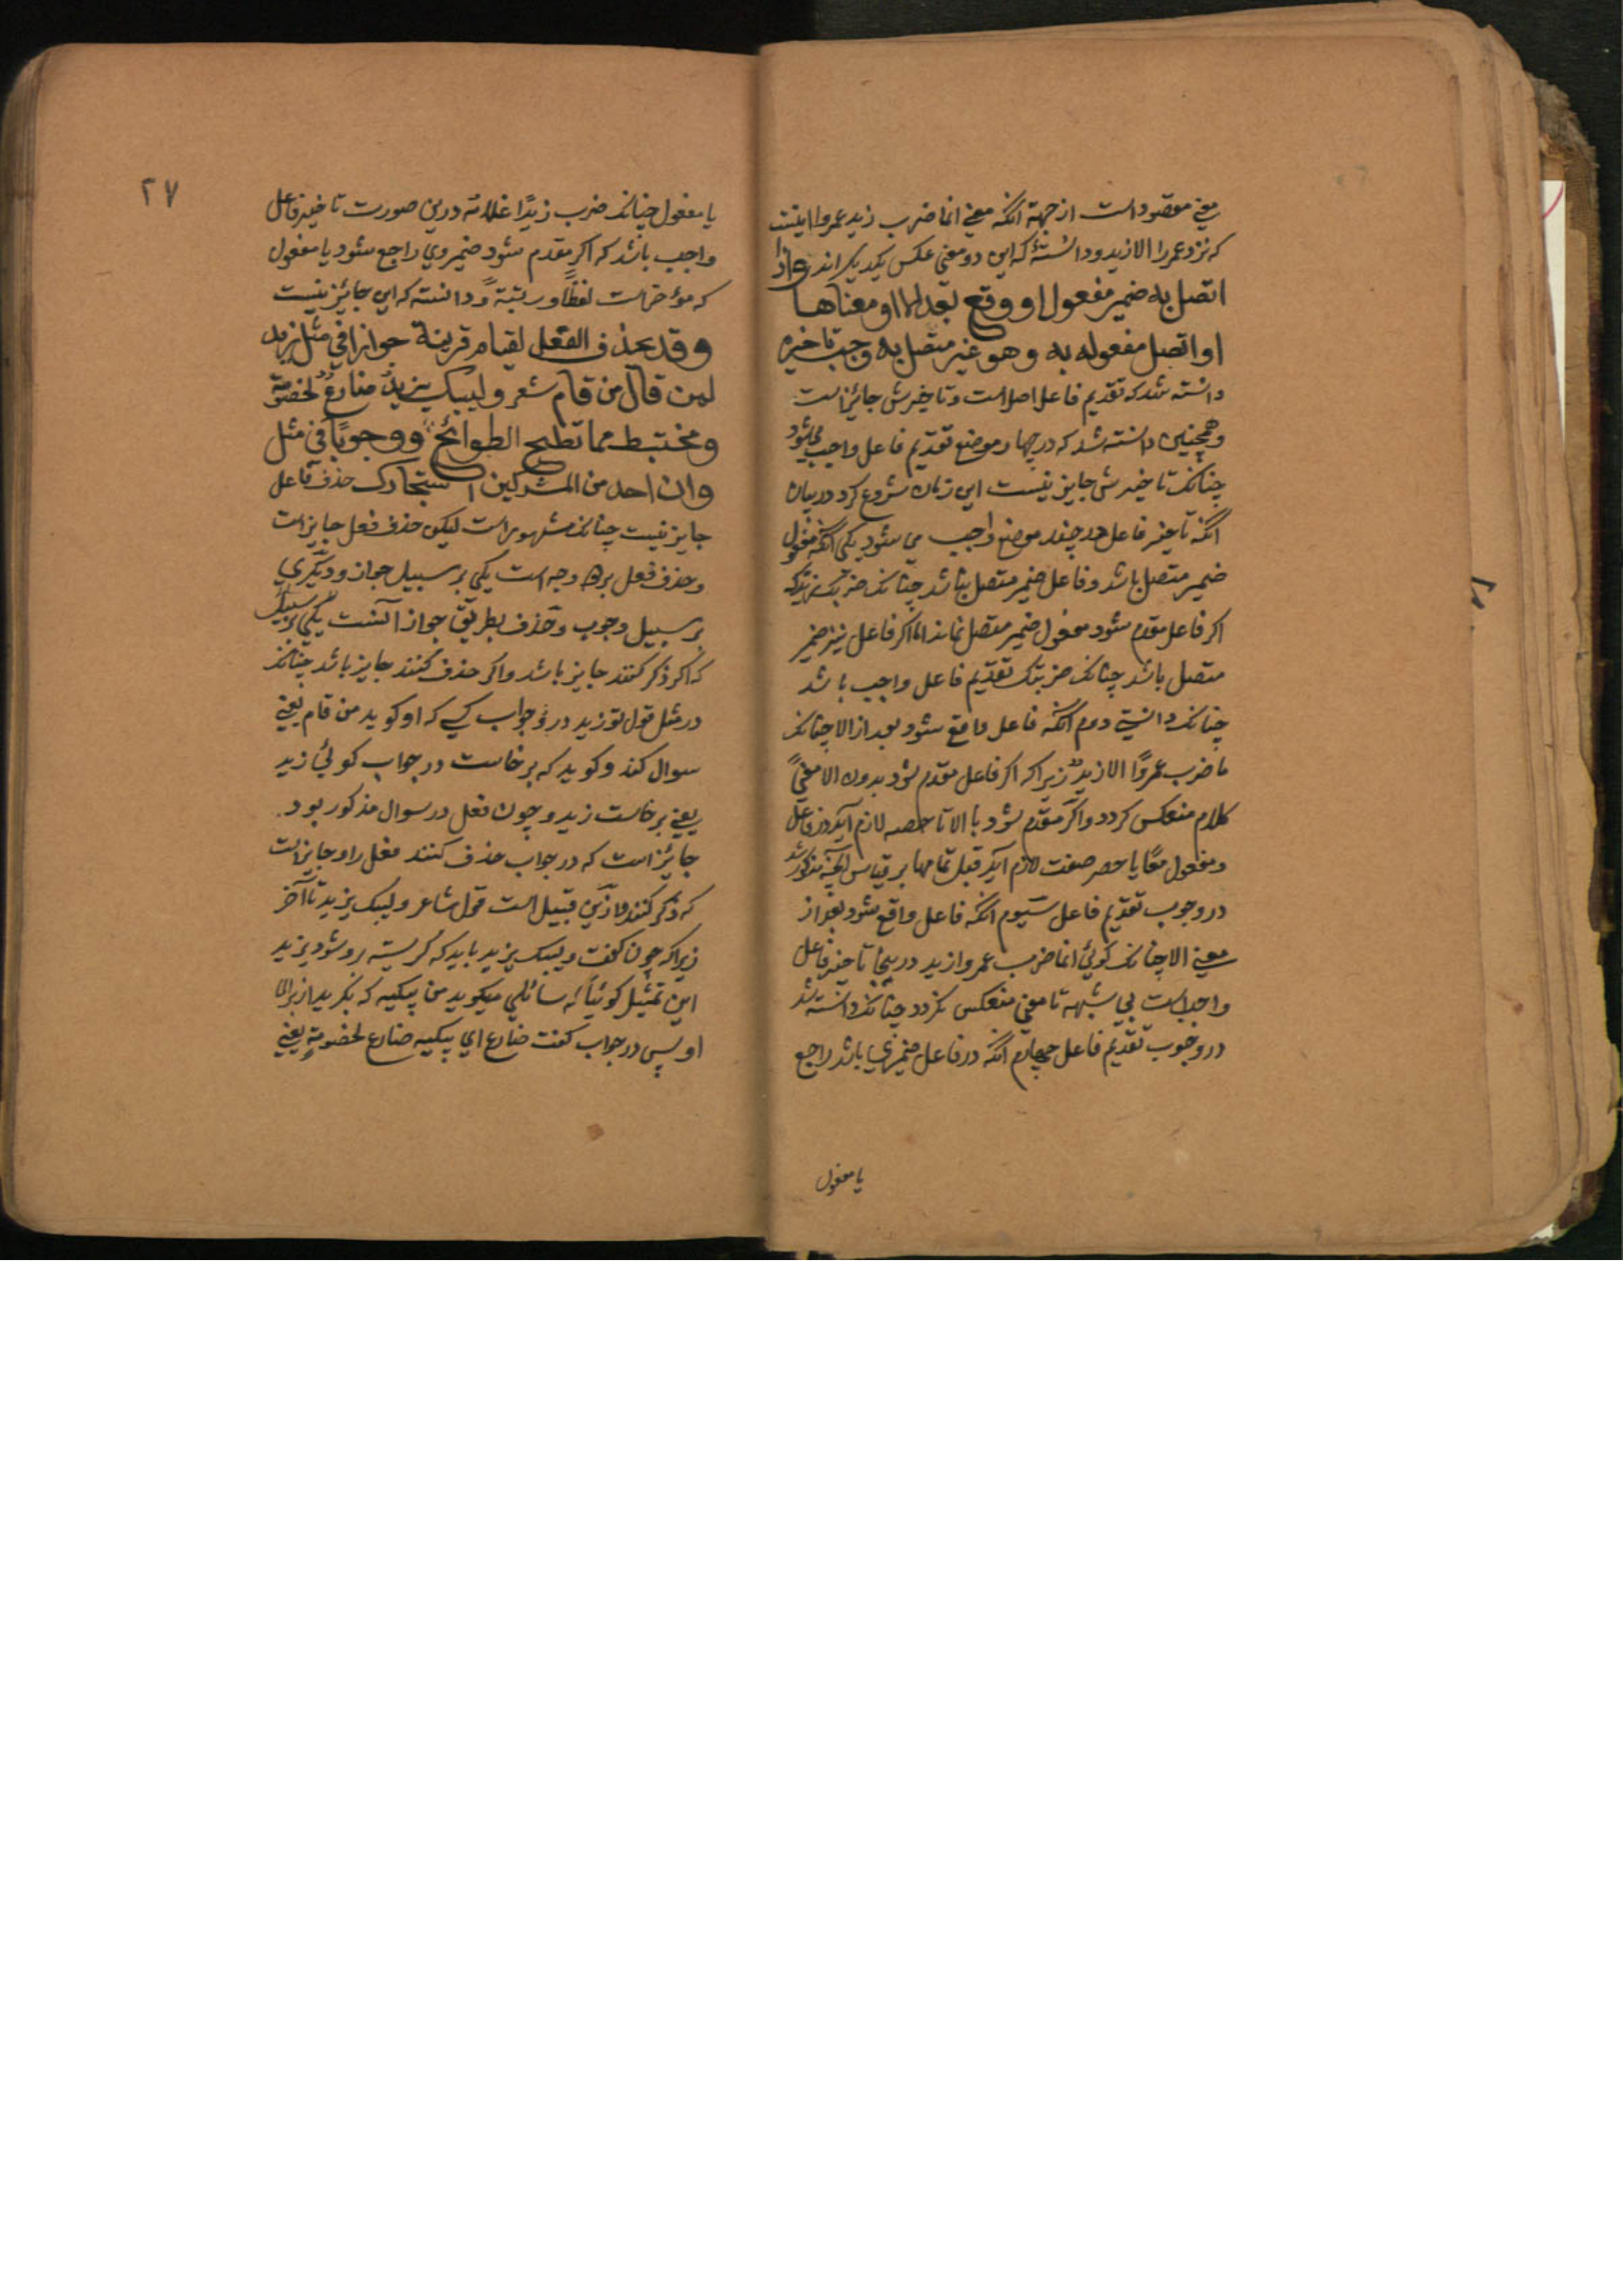 معنی مقصود است از جهة آنکه معنی انما ضرب زید عمروا اینست
که نزد عمر را الا زید و دانستهٔ که این دو معنی عکس یکدیکر اند واذا
اتصل به ضمیر مفعول او وقع بعد الا او معناها
او اتصل مفعوله به وهو غیر متصل به وجب تاخیره
دانسته شد که تقدیم فاعل اصل است و تاخیرش جائز است
وهمچنین دانسته شد که در چهار موضع تقدیم فاعل واجب می شود
چنانکه تاخیرش جایز نیست این زمان شروع کرد در بیان
آنکه تاخیر فاعل در چند موضع واجب می شود یکی آنکه مفعول
ضمیر متصل باشد و فاعل ضمیر متصل نباشد چنانکه ضربک زید که
اکر فاعل مقدم شود مفعول ضمیر متصل نماند اما اکر فاعل نیز ضمیر
متصل باشد چنانکه ضربتک تقدیم فاعل واجب باشد
چنانکه دانستی دوم آنکه فاعل واقع شود بعد از الا چنانکه
ما ضرب عمروًا الا زیدٌ زیرا که اکر فاعل مقدم شود بدون الا معنی
کلام منعکس کردد و اکر مقدم شود با الا تا حصر لازم آید در فاعل
و مفعول معًا یا حصر صفت لازم آید قبل تمامها بر قیاس آنچه مذکور شد
در وجوب تقدیم فاعل سیوم آنکه فاعل واقع شود بعد از
معنی الا چنانکه کوئی انما ضرب عمروا زید در ینجا تاخیر فاعل
واجب است بی شبهه تا معنی منعکس نکردد چنانکه دانسته شد
در وجوب تقدیم فاعل چهارم آنکه در فاعل ضمیری باشد راجع
یا مفعول
۲۷
یا مفعول چنانکه ضرب زیدًا غلامه درین صورت تاخیر فاعل
واجب باشد که اکر مقدم شود ضمیر وی راجع شود یا مفعول
که مؤخر است لفظًا و رتبةً و دانسته که این جائز نیست
وقد یحذف الفعل لقیام قرینة جوازا فی مثل زید
لمن قال من قام شعر ولیبک یزیدُ ضارعٌ لخصومة
ومختبط مما تطیح الطوائح ووجوبًا فی مثل
وان احد من المشرکین استجارک حذف فاعل
جایز نیست چنانکه مشهور است لیکن حذف فعل جایز است
و حذف فعل بر دو وجه است یکی بر سبیل جواز و دیکری
بر سبیل وجوب و حذف بطریق جواز آنست یکی بر سبیل
که اکر ذکر کنند جایز باشد و اکر حذف کنند جایز باشد چنانکه
در مثل قول تو زید در جواب کسی که او کوید من قام یعنی
سوال کند و کوید که برخاست در جواب کوئی زید
یعنی برخاست زید و چون فعل در سوال مذکور بود
جائز است که در جواب حذف کنند فعل را و جایز است
که ذکر کنند و ازین قبیل است قول شاعر ولیبک یزید تا آخر
زیرا که چون کفت ولیبک یزید باید که کریسته رو شود یزید
این تمثیل کوئیا که سائلی میکوید من یبکیه که بکرید از برای
او پس در جواب کفت ضارع ای یبکیه ضارع لخصومةٍ یعنی